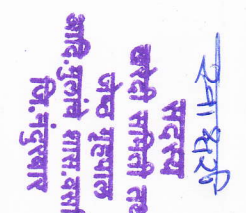 स्वाक्षरी
सदस्य
खरेदी समिती तथा
जेष्ठ गृहपाल
आदि.मुलांचे शास.वस
जि.नंदुरबार